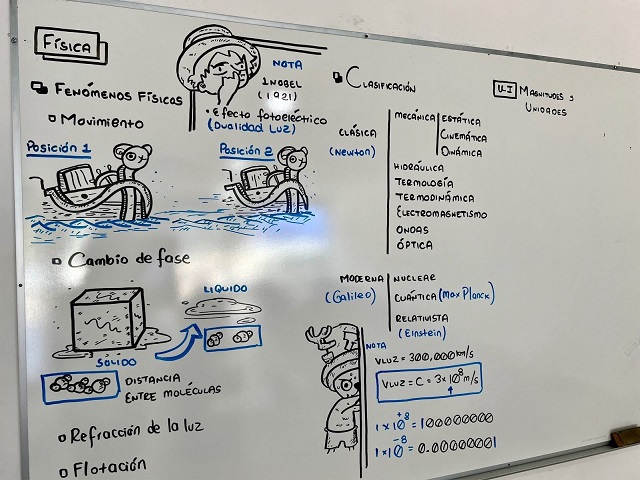 FÍSICA
FENÓMENOS FÍSICOS
Movimiento
Posición 1
Posición 2
NOTA
1NOBEL
(1921)
• Efecto fotoeléctrico
(Dualidad Luz)
Cambio de fase
SÓLIDO
LIQUIDO
DISTANCIA
ENTRE MOLÉCULAS
Refracción de la luz
Flotación
CLASIFICACIÓN
CLÁSICA
(Newton)
MECÁNICA
ESTÁTICA
CINEMÁTICA
DINÁMICA
HIDRÁULICA
TERMOLOGÍA
TERMODINÁMICA
ELECTROMAGNETISMO
ONDAS
ÓPTICA
MODERNA
(Galileo)
NUCLEAR
CUÁNTICA (Max Planck)
RELATIVISTA
(Einstein)
NOTA
VLUZ = 300,000 km/s
VLUZ = C = 3×10⁸ m/s
1×10⁺⁸ = 100000000
1×10⁻⁸ = 0.00000001
U-I MAGNITUDES Y
UNIDADES